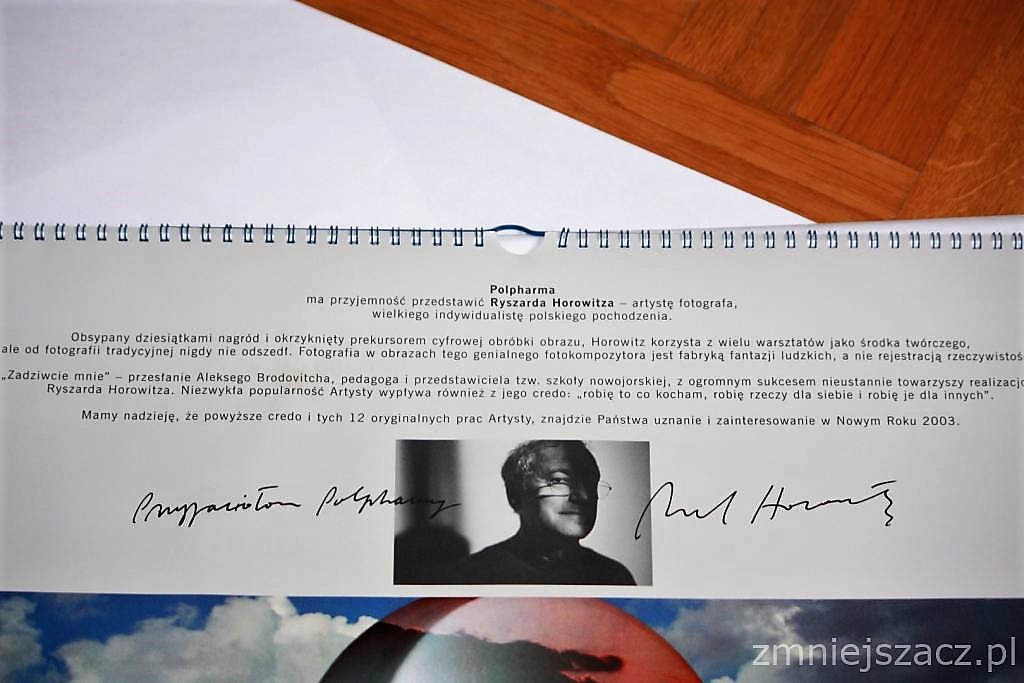 Polpharma
ma przyjemność przedstawić Ryszarda Horowitza – artystę fotografa,
wielkiego indywidualistę polskiego pochodzenia.
Obsypany dziesiątkami nagród i okrzyknięty prekursorem cyfrowej obróbki obrazu, Horowitz korzysta z wielu warsztatów jako środka twórczego,
ale od fotografii tradycyjnej nigdy nie odszedł. Fotografia w obrazach tego genialnego fotokompozytora jest fabryką fantazji ludzkich, a nie rejestracją rzeczywistoś
„Zadziwcie mnie" – przesłanie Aleksego Brodovitcha, pedagoga i przedstawiciela tzw. szkoły nowojorskiej, z ogromnym sukcesem nieustannie towarzyszy realizacjo
Ryszarda Horowitza. Niezwykła popularność Artysty wypływa również z jego credo: „robię to co kocham, robię rzeczy dla siebie i robię je dla innych".
Mamy nadzieję, że powyższe credo i tych 12 oryginalnych prac Artysty, znajdzie Państwa uznanie i zainteresowanie w Nowym Roku 2003.
Przyjaciołom Polpharmy
Horowitz
zmniejszacz.pl